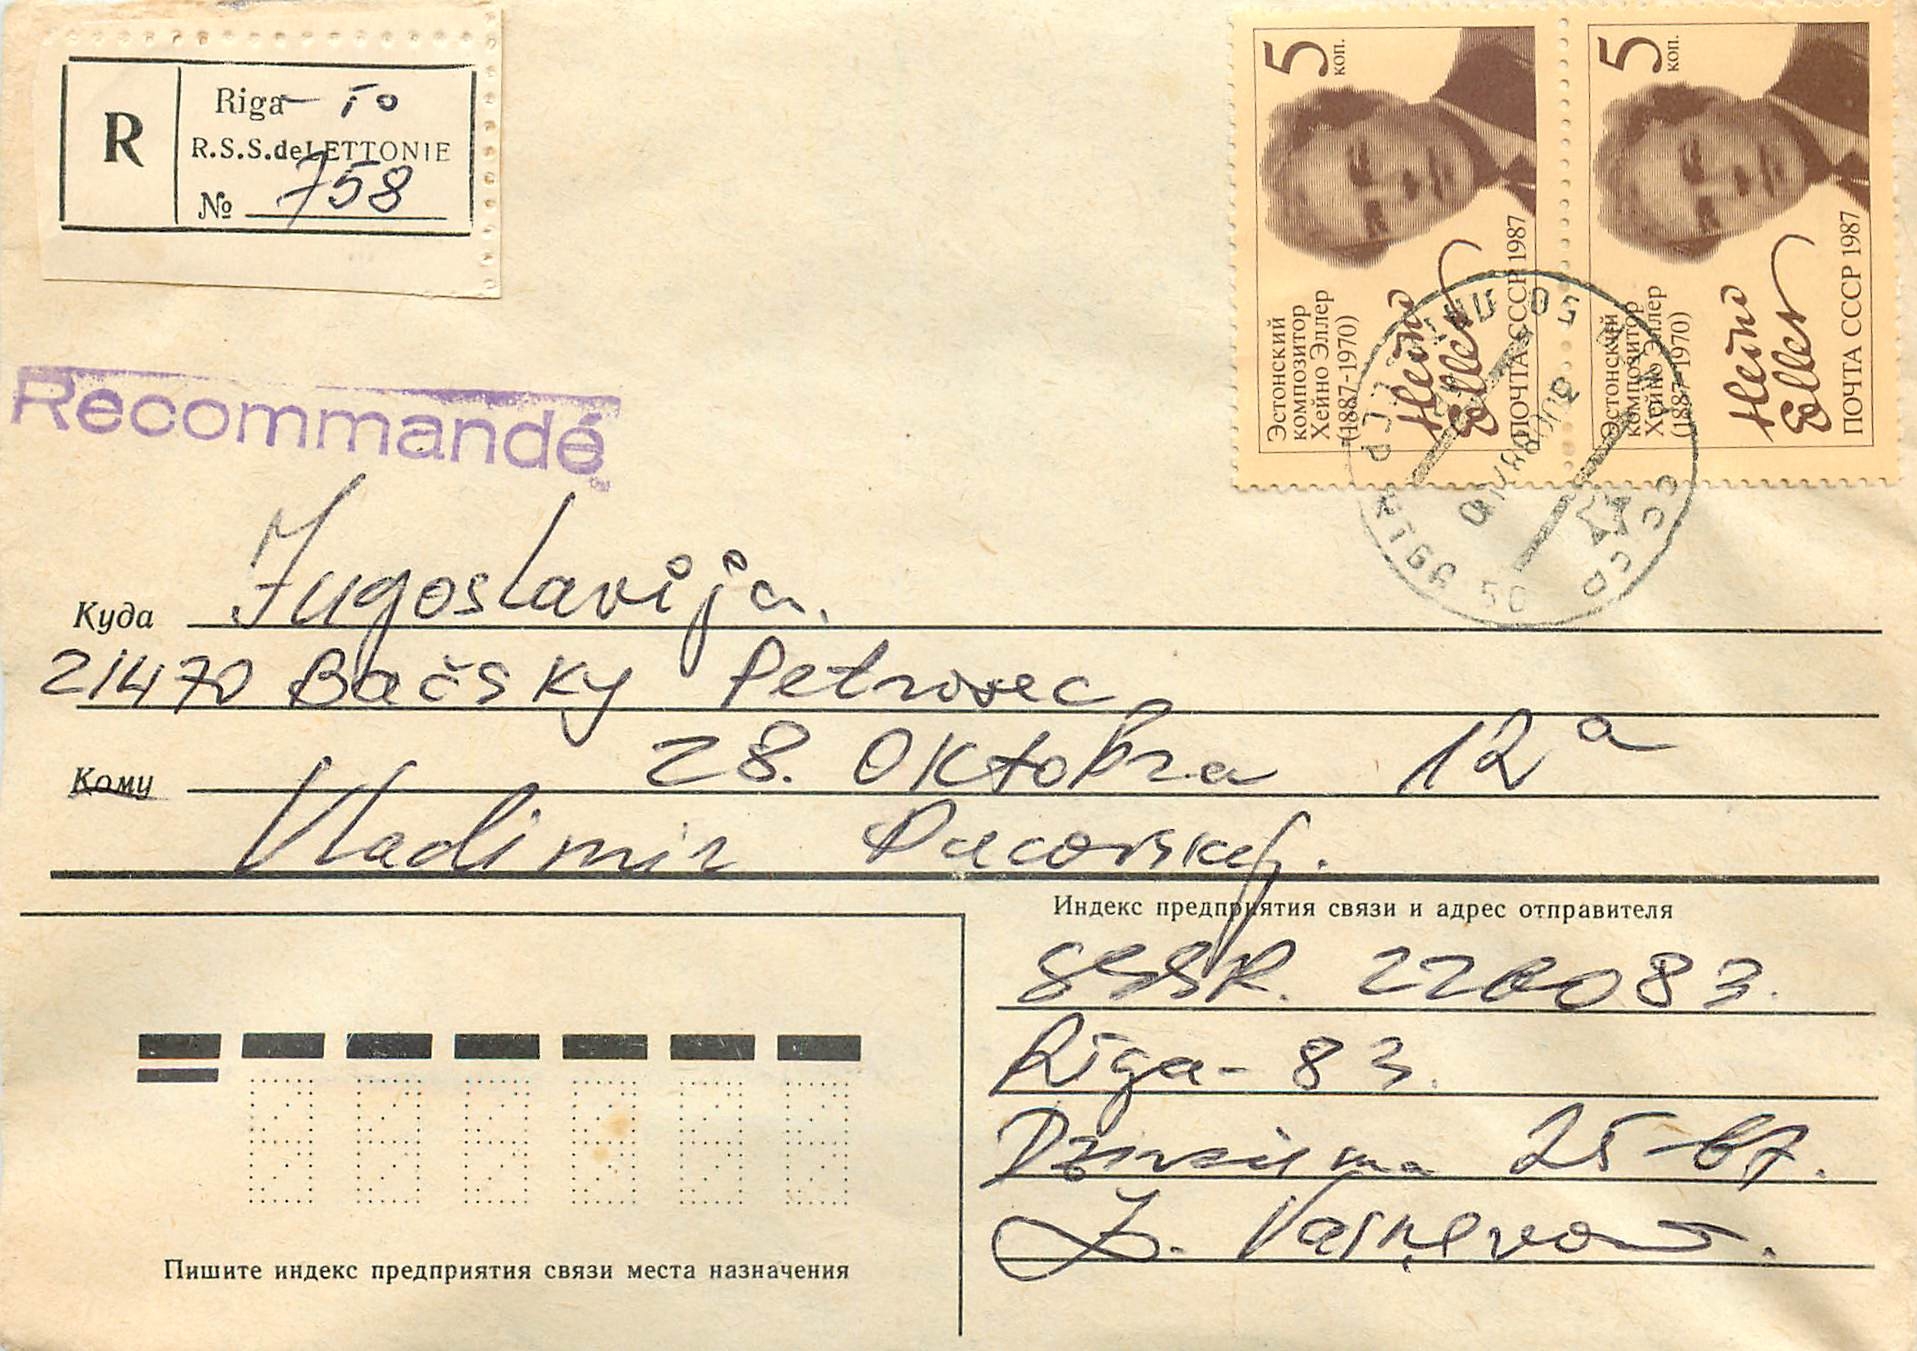 R
Riga - 50
R.S.S.deLETTONIE
№ 758
5 коп.
Эстонский
композитор
Хейно Эллер
(1887-1970)
Heino
Eller
ПОЧТА СССР 1987
5 коп.
Эстонский
композитор
Хейно Эллер
(1887-1970)
Heino
Eller
ПОЧТА СССР 1987
Recommandé
Куда Jugoslavija.
21470 Bačsky Petrovec
28. Oktobra 12 a
Кому
Vladimir
Индекс предприятия связи и адрес отправителя
SSSR. 226083.
Rīga- 83.
25-67.
Z.
Пишите индекс предприятия связи места назначения